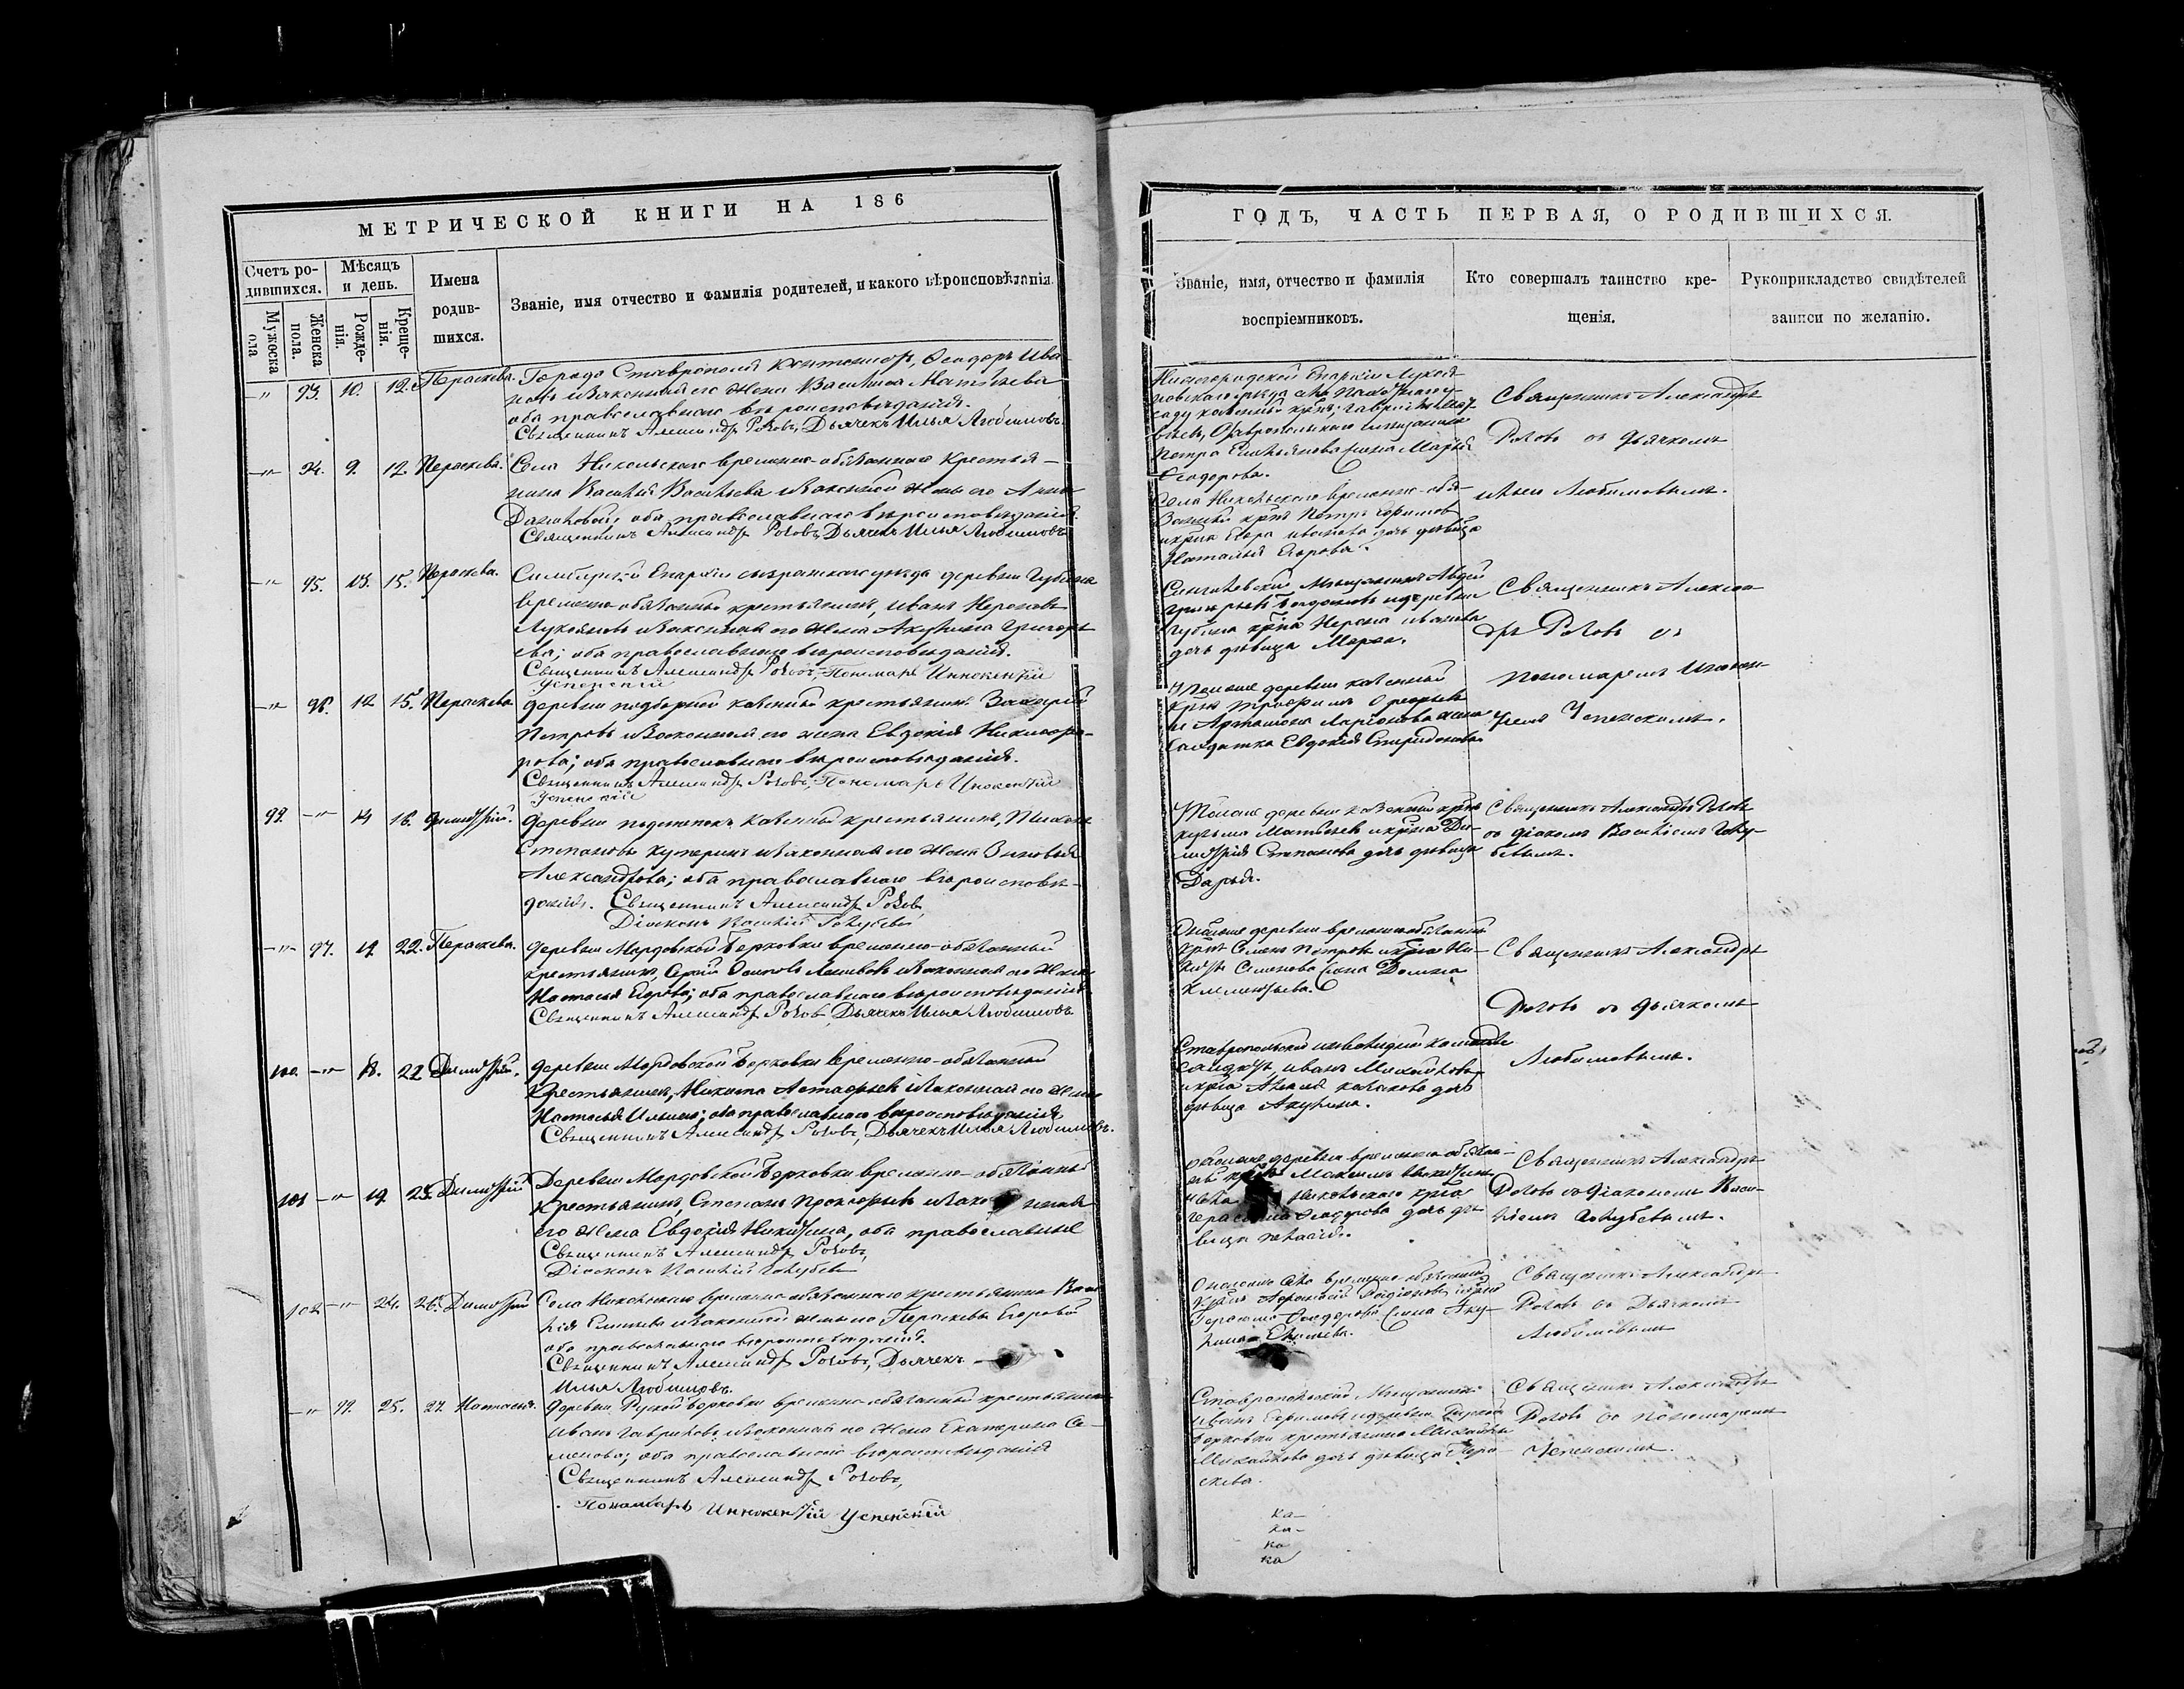 МЕТРИЧЕСКОЙ КНИГИ НА 186
Счетъ родившихся.
Мѣсяцъ и день.
Имена родившихся.
Званіе, имя отчество и фамилія родителей, и какого вѣроисповѣданія.
Мужоска пола
Женска пола.
Рожденія.
Крещенія.
-"- 93. 10. 12. Параскева. Города Ставрополя Кантонистъ, Ѳеодоръ Ива-
новъ и законная его жена Василиса Матвѣева
оба православнаго вѣроисповѣданія.
Священникъ Александръ Роковъ, Дьячекъ Илья Любимовъ.
-"- 94. 9. 12. Параскева. Села Никольскаго временно-обязаннаго крестья-
нина Василія Васильева и законной жены его Анны
оба православнаго вѣроисповѣданія.
Священникъ Александръ Роковъ, Дьячекъ Илья Любимовъ
-"- 95. 13. 15. Параскева. Симбирской Епархіи сызранскаго уѣзда деревни Губина
временно обязанный крестьянинъ, Иванъ
Лукояновъ и законная его жена Акулина Григорь-
ева; оба православнаго вѣроисповѣданія.
Священникъ Александръ Роковъ, Пономарь Иннокентій
Успенскій
-"- 96. 12 15. Параскева деревни подборной казенный крестьянинъ Захарій
Петровъ и законная его жена Евдокія Никифо-
рова; оба православнаго вѣроисповѣданія.
Священникъ Александръ Роковъ, Пономарь Инокентій
Успенскій
99. -"- 14 16. Димитрій. деревни подстепокъ казенный крестьянинъ,
Степановъ Куперинъ и законная его жена Зиновья
Александрова; оба православнаго вѣроисповѣ-
данія. Священникъ Александръ Роковъ
Діаконъ Василій Голубевъ
-"- 97. 19. 22. Параскева. деревни Мордовской Борковки временно-обязанный
крестьянинъ, Сергій Осиповъ и законная его жена
Настасья Егорова; оба православнаго вѣроисповѣданія
Священникъ Александръ Роковъ, Дьячекъ Илья Любимовъ
100. -"- 18. 22 Димитрій. деревни Мордовской Борковки временно-обязанный
крестьянинъ, Никита Астафьевъ и законная его жена
Настасья Ильина; оба православнаго вѣроисповѣданія
Священникъ Александръ Роковъ, Дьячекъ Илья Любимовъ.
101 -"- 19. 25. Димитрій Деревни Мордовской Борковки временно-обязанный
крестьянинъ, Степанъ Прокофьевъ и законная
его жена Евдокія Никитина, оба православные
Священникъ Александръ Роковъ,
Діаконъ Василій Голубевъ
102 -"- 24. 26. Димитрій Села Никольскаго временно обязаннаго крестьянина Васи-
лія и законной жены его Параскевы Егоровой
оба православнаго вѣроисповѣданія.
Священникъ Александръ Роковъ, Дьячекъ
Илья Любимовъ.
-"- 98. 25. 27. Настасья. деревни Руской Борковки временно обязанный крестьянинъ
Иванъ Гавриловъ и законная его жена Екатерина Се-
менова; оба православнаго вѣроисповѣданія
Священникъ Александръ Роковъ,
Пономарь Иннокентій Успенскій
ГОДЪ, ЧАСТЬ ПЕРВАЯ, О РОДИВШИХСЯ.
Званіе, имя, отчество и фамилія воспріемниковъ.
Кто совершалъ таинство крещенія.
Рукоприкладство свидѣтелей записи по желанію.
Нижегородской Епархіи Лукоя-
новскаго уѣзда
казенный крнъ; Гаврилъ
Ставропольскаго мѣщанина
Петра Емельянова жена Марья
Ѳеодорова.
Священникъ Александръ
Роковъ съ дьячкомъ
Села Никольскаго временно-обя-
занный крнъ Петръ
и крна Егора Иванова дочь дѣвица
Наталья Егорова.
Ильею Любимовымъ.
Мѣщанинъ Авдей
Григорьевъ Богдановъ и деревни
Губина крна Иванова
дочь дѣвица Марѳа.
Священникъ Алексан-
дръ Роковъ съ
деревни казенный
крнъ Трофимъ
и Артамона Ларіонова жена
солдатка Евдокія Спиридонова
пономаремъ Инокен-
Успенскимъ.
Тойже деревни казенный крнъ
Кузьма Матвѣевъ и крна Ди-
митрія Степанова дочь дѣвица
Дарья.
Священникъ Александръ Роковъ
съ діакономъ Василіемъ Голу-
бевымъ.
деревни временнообязанный
крнъ Семенъ Петровъ и крна Ни-
киты Семенова жена Домна
Клементьева.
Священникъ Александръ
Роковъ съ дьячкомъ
Ставропольской инвалидной команды
солдатъ, Иванъ Михайловъ
и крна
дѣвица Акулина.
Любимовымъ.
деревни временно обязан-
крнъ Максимъ Никитинъ
Никольскаго крна
Герасима Ѳеодорова дочь дѣ-
вица Пелагія.
Священникъ Александръ
Роковъ съ діакономъ Васи-
ліемъ Голубевымъ.
села временно обязанный
крнъ Афанасій Родіоновъ и крна
Герасима Ѳеодорова жена Аку-
лина
Священникъ Александръ
Роковъ съ Дьячкомъ
Любимовымъ
Ставропольской Мѣщанинъ
Иванъ Ефимовъ и деревни Руской
Борковки крестьянина Михайлы
Михайлова дочь дѣвица Пара-
скева.
Священникъ Александръ
Роковъ съ пономаремъ
Успенскимъ.
ка-
ка-
ка
ка